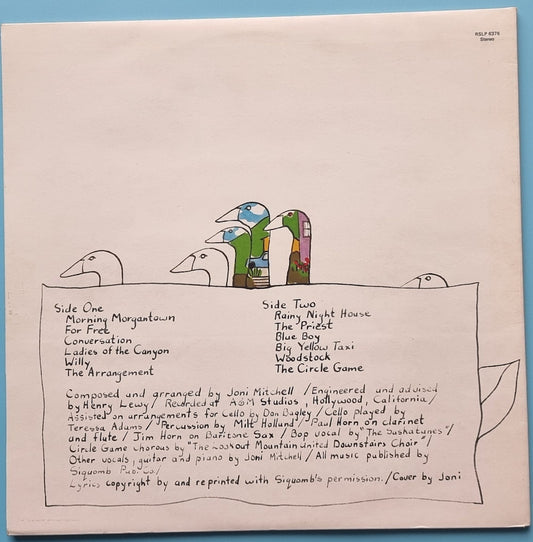 RSLP 6376
Stereo
Side One
Morning Morgantown
For Free
Conversation
Ladies of the Canyon
Willy
The Arrangement
Side Two
Rainy Night House
The Priest
Blue Boy
Big Yellow Taxi
Woodstock
The Circle Game
Composed and arranged by Joni Mitchell /Engineered and advised
by Henry Lewy/ Recorded at A&M Studios, Hollywood, California/
Assisted on arrangements for Cello by Don Bagley / Cello played by
Teressa Adams/ Percussion by Milt Holland/ Paul Horn on clarinet
and flute/ Jim Horn on Baritone Sax / Bop vocal by "The Saskatunes"/
Circle Game chorous by "The Lookout Mountain United Downstairs Choir"/
Other vocals, guitar and piano by Joni Mitchell/All music published by
Siquomb Pub. Co/
Lyrics copyright by and reprinted with Siquomb's permission./Cover by Joni